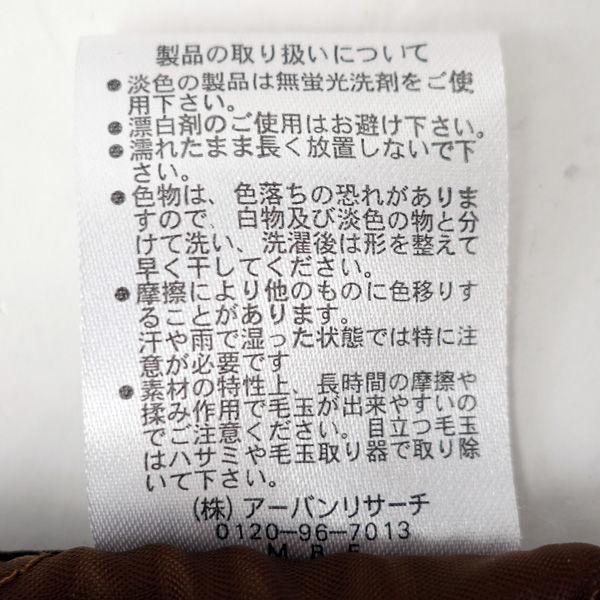 製品の取り扱いについて
●淡色の製品は無蛍光洗剤をご使
用下さい。
●漂白剤のご使用はお避け下さい。
●濡れたまま長く放置しないで下
さい。
●色物は、色落ちの恐れがありま
すので、白物及び淡色の物と分
けて洗い、洗濯後は形を整えて
早く干してください。
●摩擦により他のものに色移りす
ることがあります。
汗や雨で湿った状態では特に注
意が必要です
●素材の特性上、長時間の摩擦や
揉み作用で毛玉が出来やすいの
でご注意ください。目立つ毛玉
はハサミや毛玉取り器で取り除
いて下さい。
(株) アーバンリサーチ
0120-96-7013